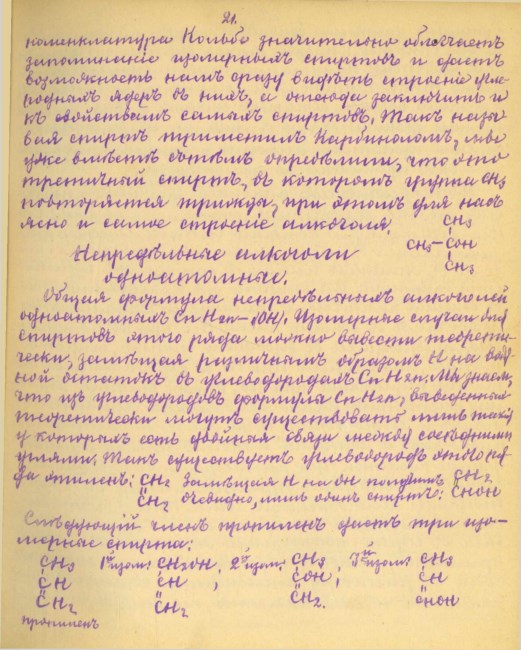 21.
номенклатура Кольбе значительно облегчаетъ
запоминаніе изомерныхъ спиртовъ и даетъ
возможность намъ сразу видѣть строеніе угле-
родныхъ ядеръ въ нихъ, а отсюда заключить и
къ свойствамъ самыхъ спиртовъ. Такъ назы-
вая спиртъ триметилъ карбиноломъ, мы
уже вмѣстѣ съ тѣмъ опредѣлили, что это
третичный спиртъ, въ которомъ группа CH3
повторяется трижды, при этомъ для насъ
ясно и самое строеніе алкоголя.
CH3
CH3-COH
CH3
Непредѣльные алкоголи
одноатомные.
Общая формула непредѣльныхъ алкоголей
одноатомныхъ CnH2n-1(OH). Изомерные случаи для
спиртовъ этого ряда можно вывести теорети-
чески, замѣщая различнымъ образомъ H на вод-
ной остатокъ въ углеводородахъ CnH2n. Мы знаем,
что изъ углеводородовъ формулы CnH2n, выведенныхъ
теоретически могутъ существовать лишь такіе
у которыхъ есть двойная связь между сосѣдними
углями. Такъ существуетъ углеводородъ этого ря-
да этиленъ: CH2 Замѣщая H на OH получимъ CH2
CH2 очевидно, лишь одинъ спиртъ: CHOH
Слѣдующій членъ пропиленъ даетъ три изо-
мерные спирта:
CH3 1ый изом: CH2OH, 2ой изом: CH3, 3ій изом: CH3
CH CH, COH, CH
CH2 CH2 CH2. CHOH
пропиленъ